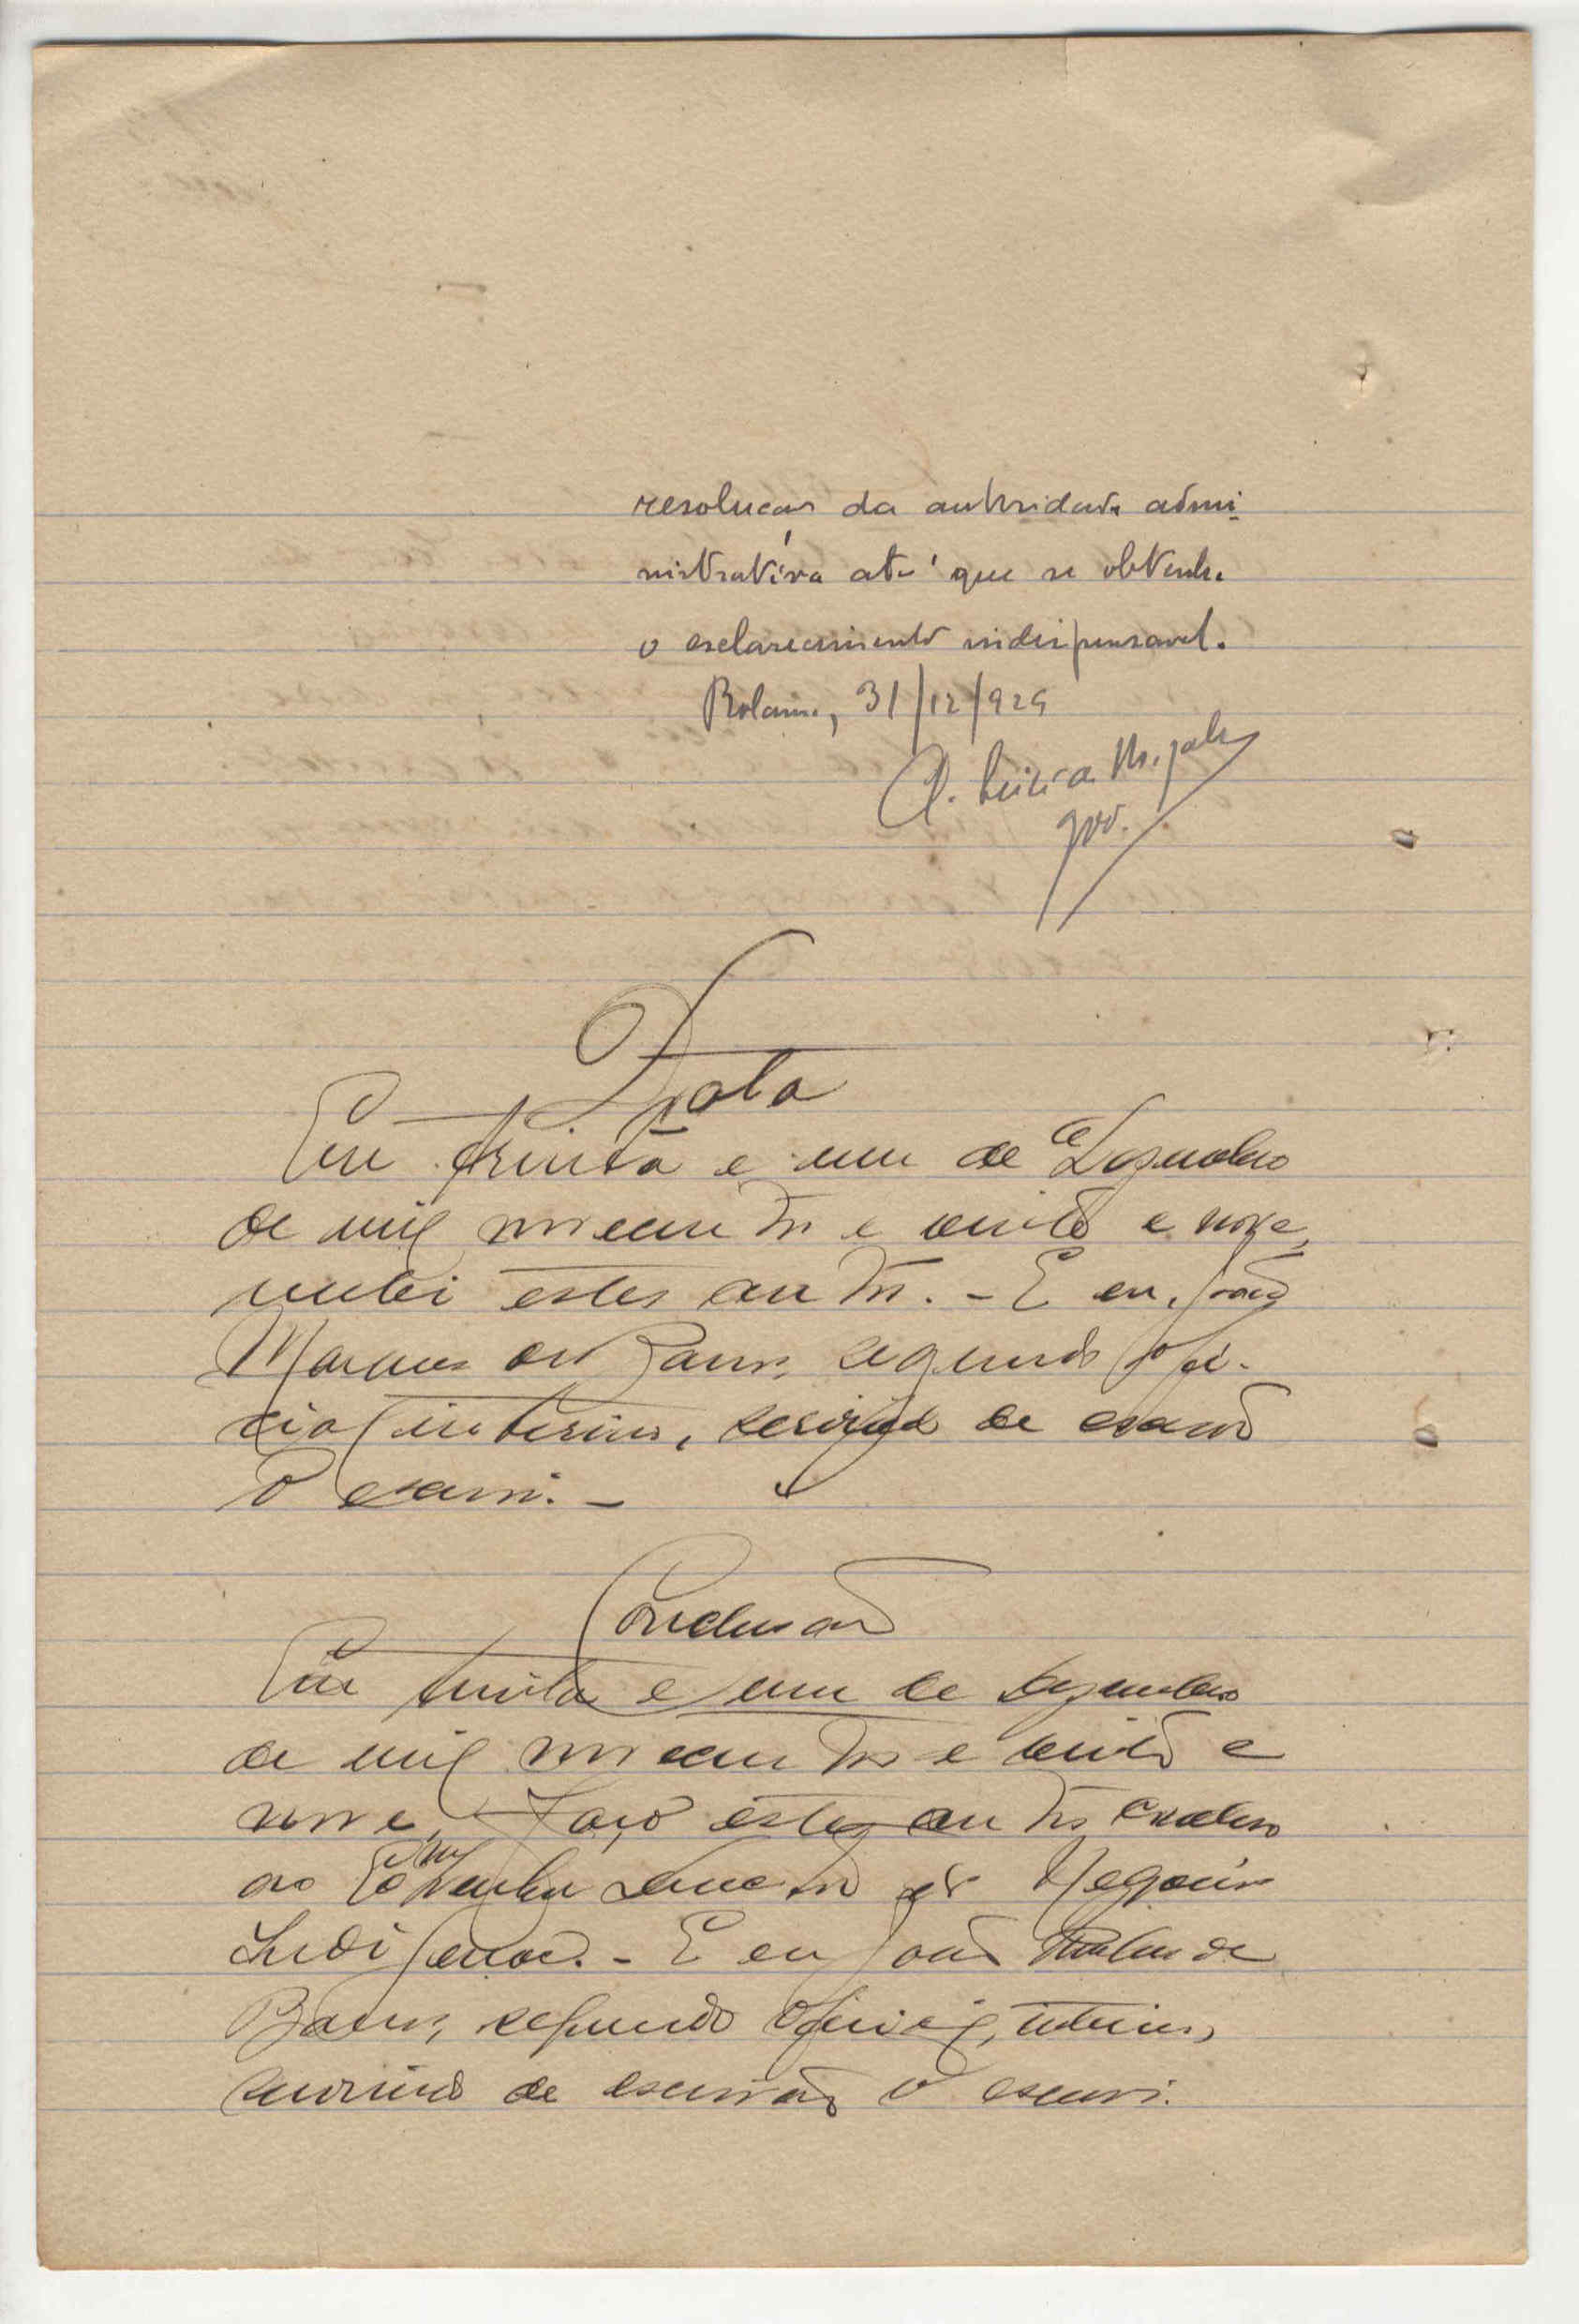 resolucão da autoridade admi-
nistrativa até que se obtenha
o esclarecimento indispensavel.
Bolama, 31/12/929
gov.
Data
Em trinta e um de Dezembro
de mil novecentos e vinte e nove,
recebi estes autos. - E eu, João
segundo ofi-
cial interino, servindo de escrivão
o escrevi. -
Conclusão
Em trinta e um de Dezembro
de mil novecentos e vinte e
nove, faço estes autos conclusos
ao Ex.mo Senhor Director dos Negocios
Indigenas. - E eu João de
Barros, segundo oficial, interino,
servindo de escrivão o escrevi.